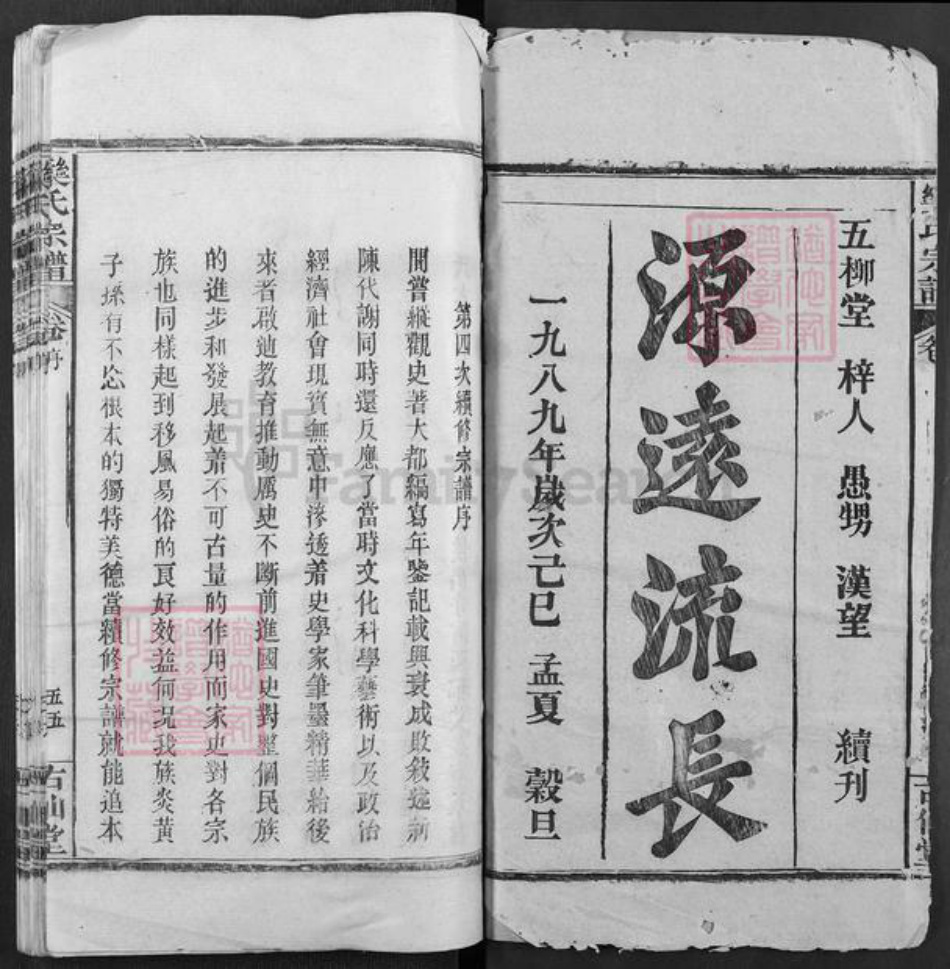 五柳堂 梓人 愚甥 漢望 續刊
源遠流長
一九八九年歲次己巳 孟夏 穀旦
氏宗譜
第四次續修宗譜序
閒嘗縱觀史著大都編寫年鑒記載興衰成敗敍述新
陳代謝同時還反應了當時文化科學藝術以及政治
經濟社會現實無意中滲透着史學家筆墨精華給後
來者啟廸教育推動厯史不斷前進國史對整個民族
的進步和發展起着不可古量的作用而家史對各宗
族也同樣起到移風易俗的良好效益何况我族炎黃
子孫有不忘根本的獨特美德當續修宗譜就能追本
氏宗譜
序
五五
FamilySearch